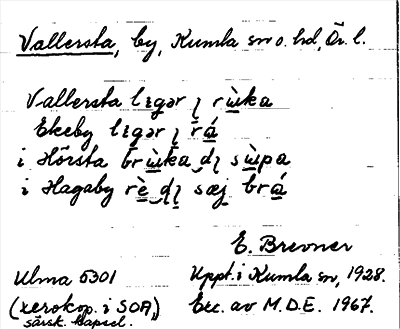 Vallersta, by, Kumla sn o. hd, Ör. l.
Vallersta lɩgər ɩ rὼka
Ekeby lɩgər ɩ rá
i Hörsta brὼka dɩ sὼpa
i Hagaby rè dɩ sæj brá
E. Brevner
Ulma 5301 Uppt. i Kumla sn, 1928.
(xerokop. i SOA, Exc. av M.D.E. 1967.
särsk. kapsel.